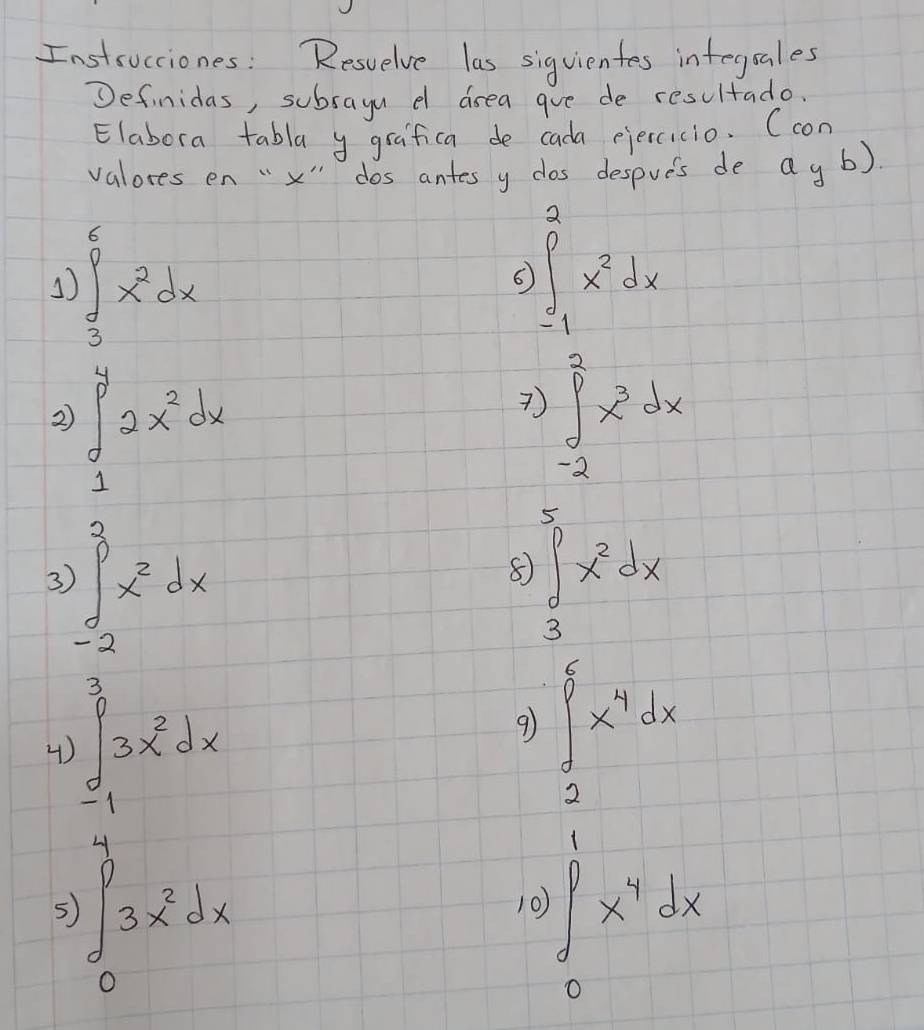 Instrucciones: Resuelve las siguientes integrales
Definidas, subraya el área que de resultado.
Elabora tabla y gráfica de cada ejercicio. (con
valores en "x" dos antes y dos después de a y b).
1) ∫₃⁶ x² dx
2) ∫₁⁴ 2x² dx
3) ∫₋₂² x² dx
4) ∫₋₁³ 3x² dx
5) ∫₀⁴ 3x² dx
6) ∫₋₁² x² dx
7) ∫₋₂² x³ dx
8) ∫₃⁵ x² dx
9) ∫₂⁶ x⁴ dx
10) ∫₀¹ x⁴ dx